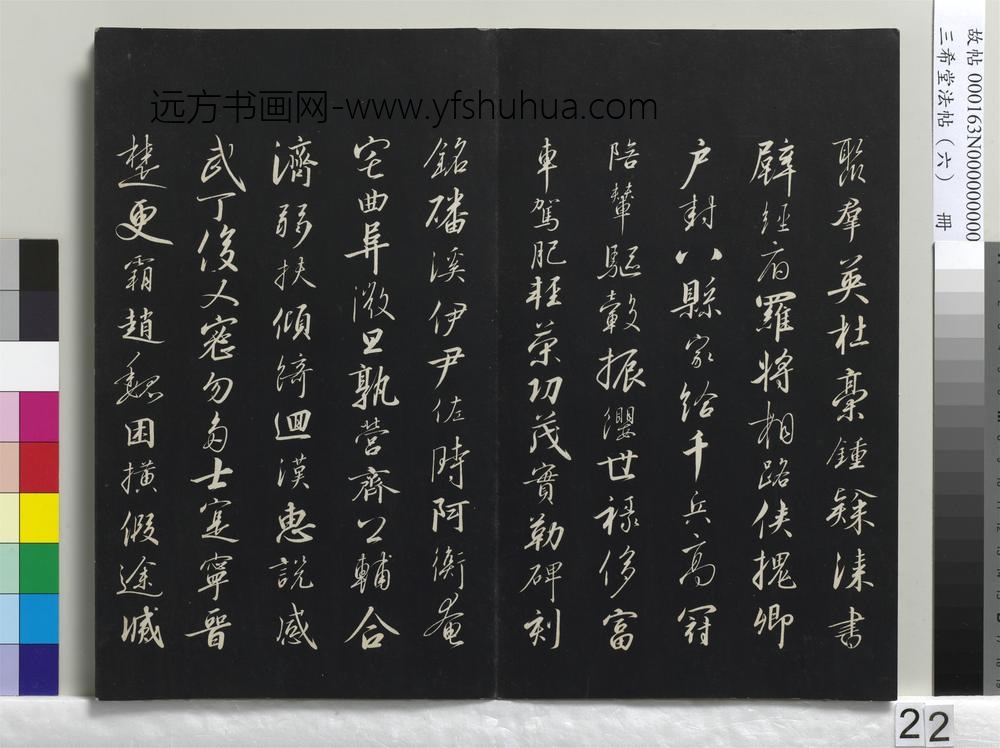 聚群英杜稾鍾隸漆書
壁經府羅將相路俠槐卿
户封八縣家給千兵高冠
陪輦驅轂振纓世祿侈富
車駕肥輕策功茂實勒碑刻
銘磻溪伊尹佐時阿衡奄
宅曲阜微旦孰營齊公輔合
濟弱扶傾綺迴漢惠說感
武丁俊乂密勿多士寔寧晉
楚更霸趙魏困橫假途滅
远方书画网-www.yfshuhua.com
故帖 000163N000000000
三希堂法帖（六） 冊
22